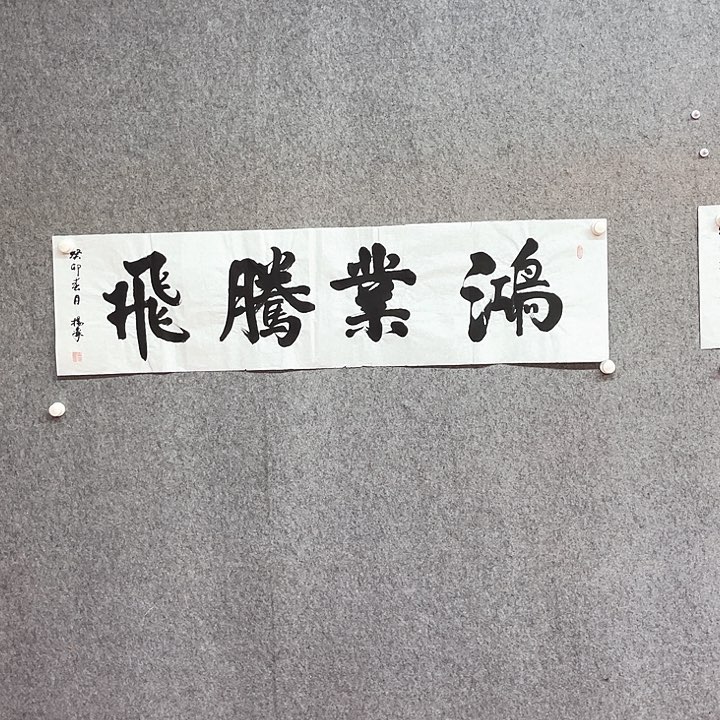 鴻業騰飛
癸卯春月 楊寧